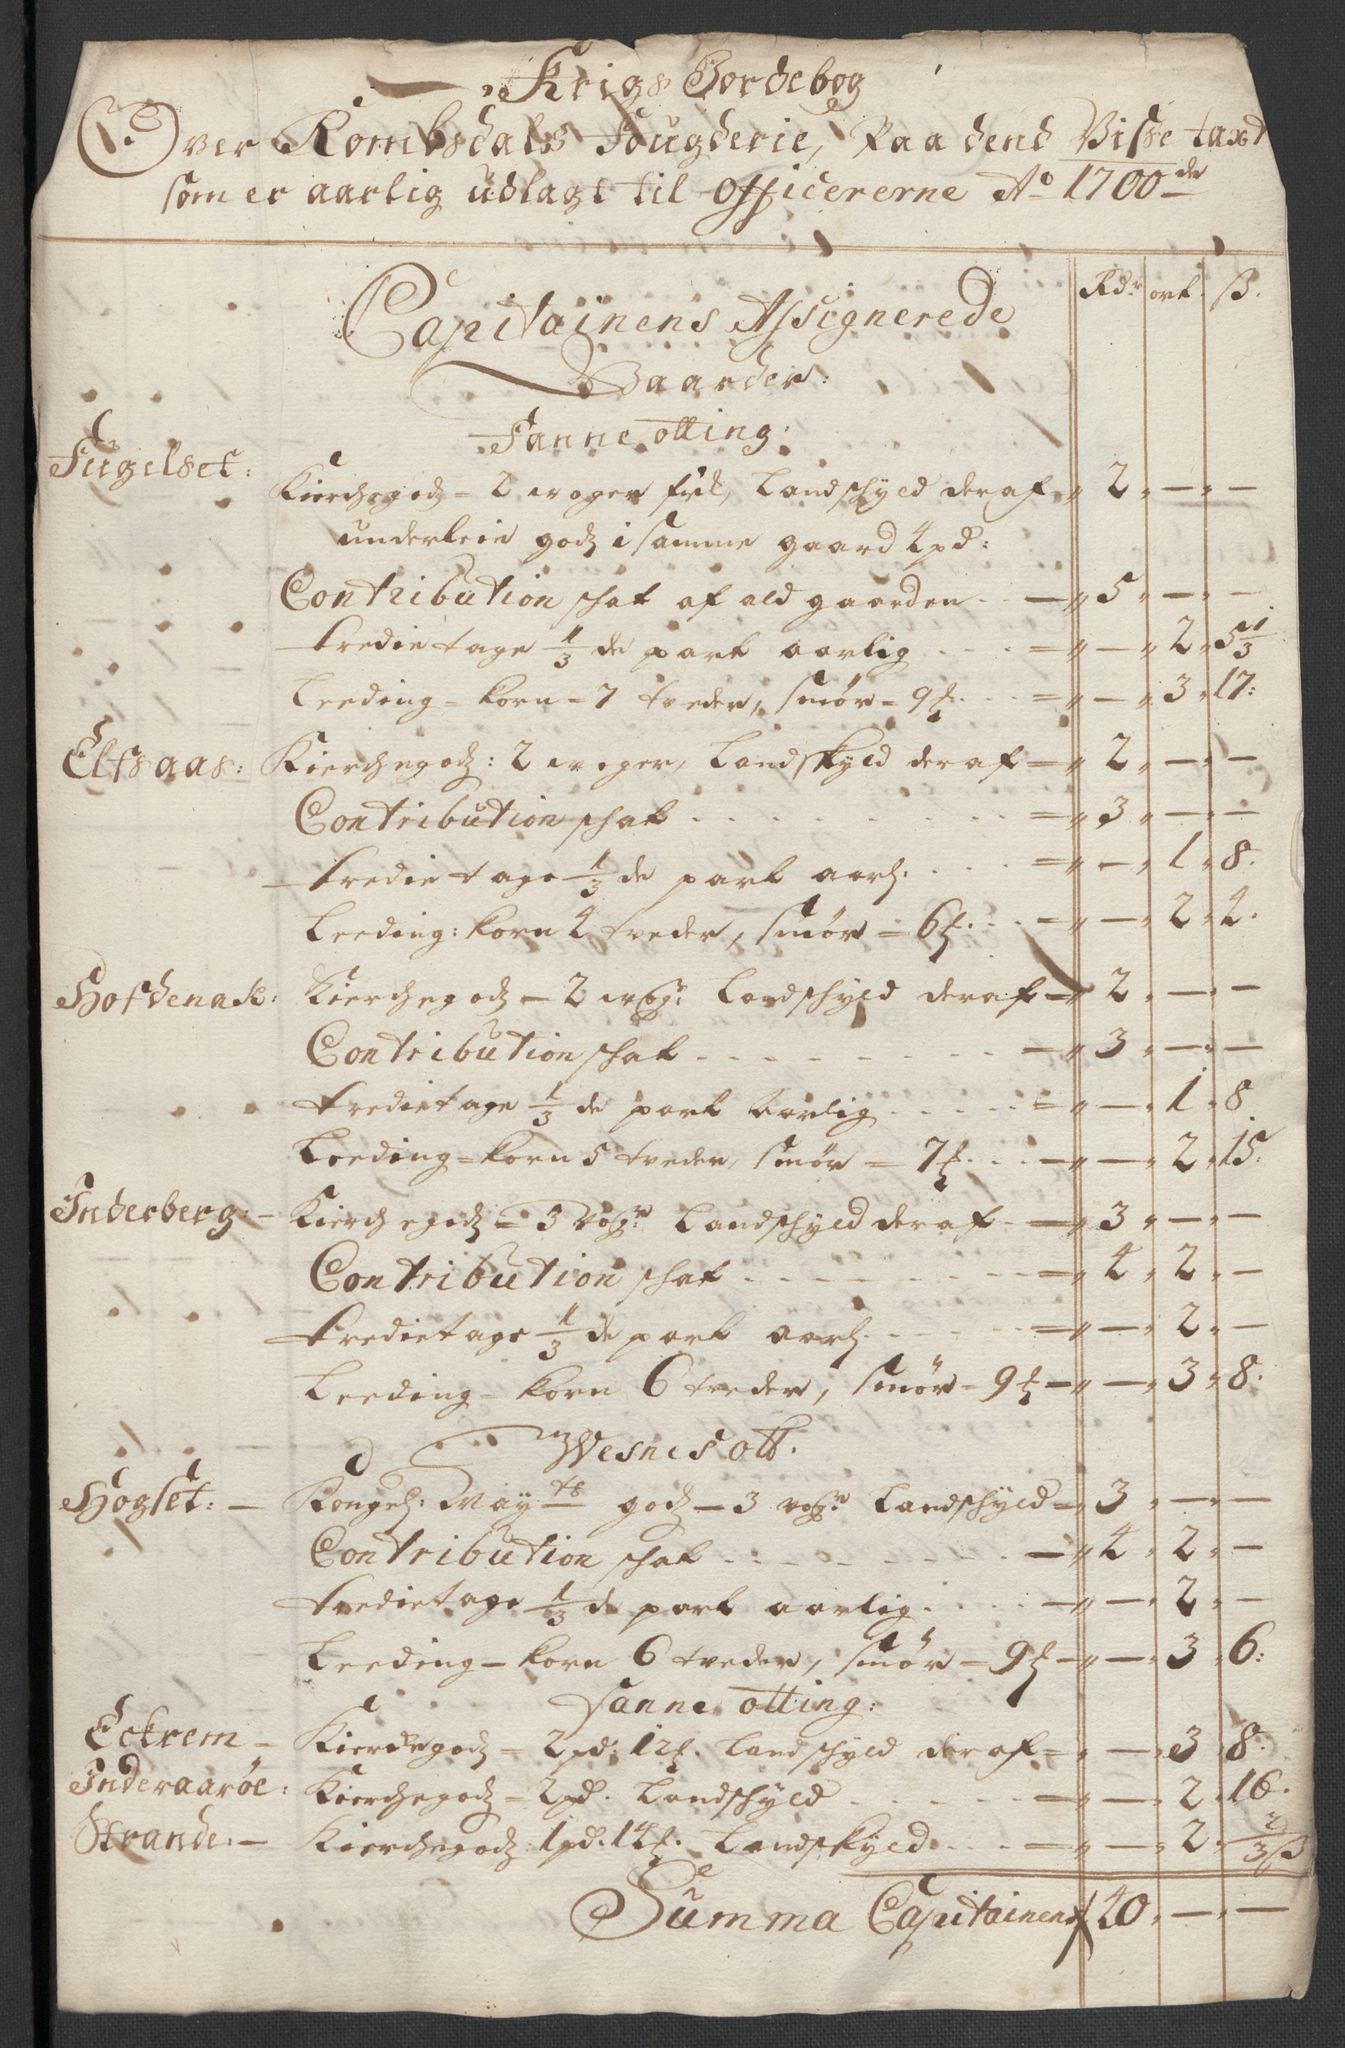 Krigs Jordebog
Over Rombsdals Fougderie, Paa dend Visse taxt
som er aarlig udlagt til officererne Ao 1700de
Rdr ort. ß.
Capitainens Assignerede
Gaarder:
Fanne otting:
Fugelset: Kierchegodz = 2 woger fisk, Landschyld deraf 2 – –
underleie godz i samme gaard 4 pd:
Contribution schat af ald gaarden 5 – –
tredietage 1/3 de part aarlig – 2 5 1/3
Leeding = korn = 7 tveder, smør = 9 – 3 17:
Elfsaas: Kierchegodz: 2 woger, Landskyld deraf 2 – –
Contribution schat 3 – –
tredietage 1/3 de part aarl. – 1 8.
Leeding: korn 4 tveder, smør = 6 – 2 4.
Hofdenack: Kierchegodz = 2 wogr Landschyld deraf 2 – –
Contribution schat 3 – –
tredietage 1/3 de part aarlig – 1 8
Leeding = korn 5 tveder, smør = 7 – 2 15.
Inderberg: Kierchegodz = 3 wogr Landschyld deraf 3 – –
Contribution schat 4 2 –
tredietage 1/3 de part aarl. – 2 –
Leeding = korn 6 tveder, smør = 9 – 3 8.
Wesnes ott.
Hogset: Kongel: Mayts godz = 3 wogr Landschyld 3 – –
Contribution schat 4 2 –
tredietage 1/3 de part aarlig – 2 –
Leeding = korn 6 tveder, smør = 9 – 3 6:
Fanne otting:
Eckrem Kierchegodz = 2 pd: 12 Landschyld deraf – 3 8.
Inderaarøe: Kierchegodz = 2 pd. Landschyld – 2 16.
Strande: Kierchegodz 1 pd. 14 Landskyld – 2 2/3 ß
Summa Capitainens 40 – –